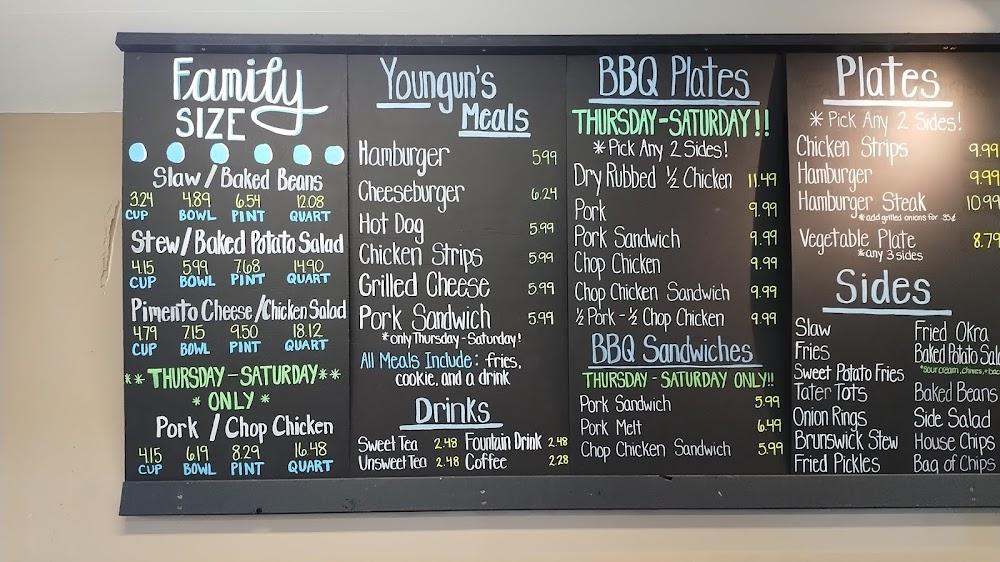 Family
SIZE
Slaw / Baked Beans
3.24 4.89 6.54 12.08
CUP BOWL PINT QUART
Stew / Baked Potato Salad
4.15 5.99 7.68 14.90
CUP BOWL PINT QUART
Pimento Cheese / Chicken Salad
4.79 7.15 9.50 18.12
CUP BOWL PINT QUART
** THURSDAY - SATURDAY **
* ONLY *
Pork / Chop Chicken
4.15 6.19 8.29 16.48
CUP BOWL PINT QUART
Youngun's
Meals
Hamburger 5.99
Cheeseburger 6.24
Hot Dog 5.99
Chicken Strips 5.99
Grilled Cheese 5.99
Pork Sandwich 5.99
*only Thursday - Saturday!
All Meals Include: fries,
cookie, and a drink
Drinks
Sweet Tea 2.48 Fountain Drink 2.48
Unsweet Tea 2.48 Coffee 2.28
BBQ Plates
THURSDAY - SATURDAY!!
* Pick Any 2 Sides!
Dry Rubbed ½ Chicken 11.49
Pork 9.99
Pork Sandwich 9.99
Chop Chicken 9.99
Chop Chicken Sandwich 9.99
½ Pork - ½ Chop Chicken 9.99
BBQ Sandwiches
THURSDAY - SATURDAY ONLY!!
Pork Sandwich 5.99
Pork Melt 6.49
Chop Chicken Sandwich 5.99
Plates
* Pick Any 2 Sides!
Chicken Strips 9.99
Hamburger 9.99
Hamburger Steak 10.99
*add grilled onions for .35¢
Vegetable Plate 8.79
*any 3 sides
Sides
Slaw
Fries
Sweet Potato Fries
Tater Tots
Onion Rings
Brunswick Stew
Fried Pickles
Fried Okra
Baked Potato
*sour cream, chives,
Baked Beans
Side Salad
House Chips
Bag of Chips